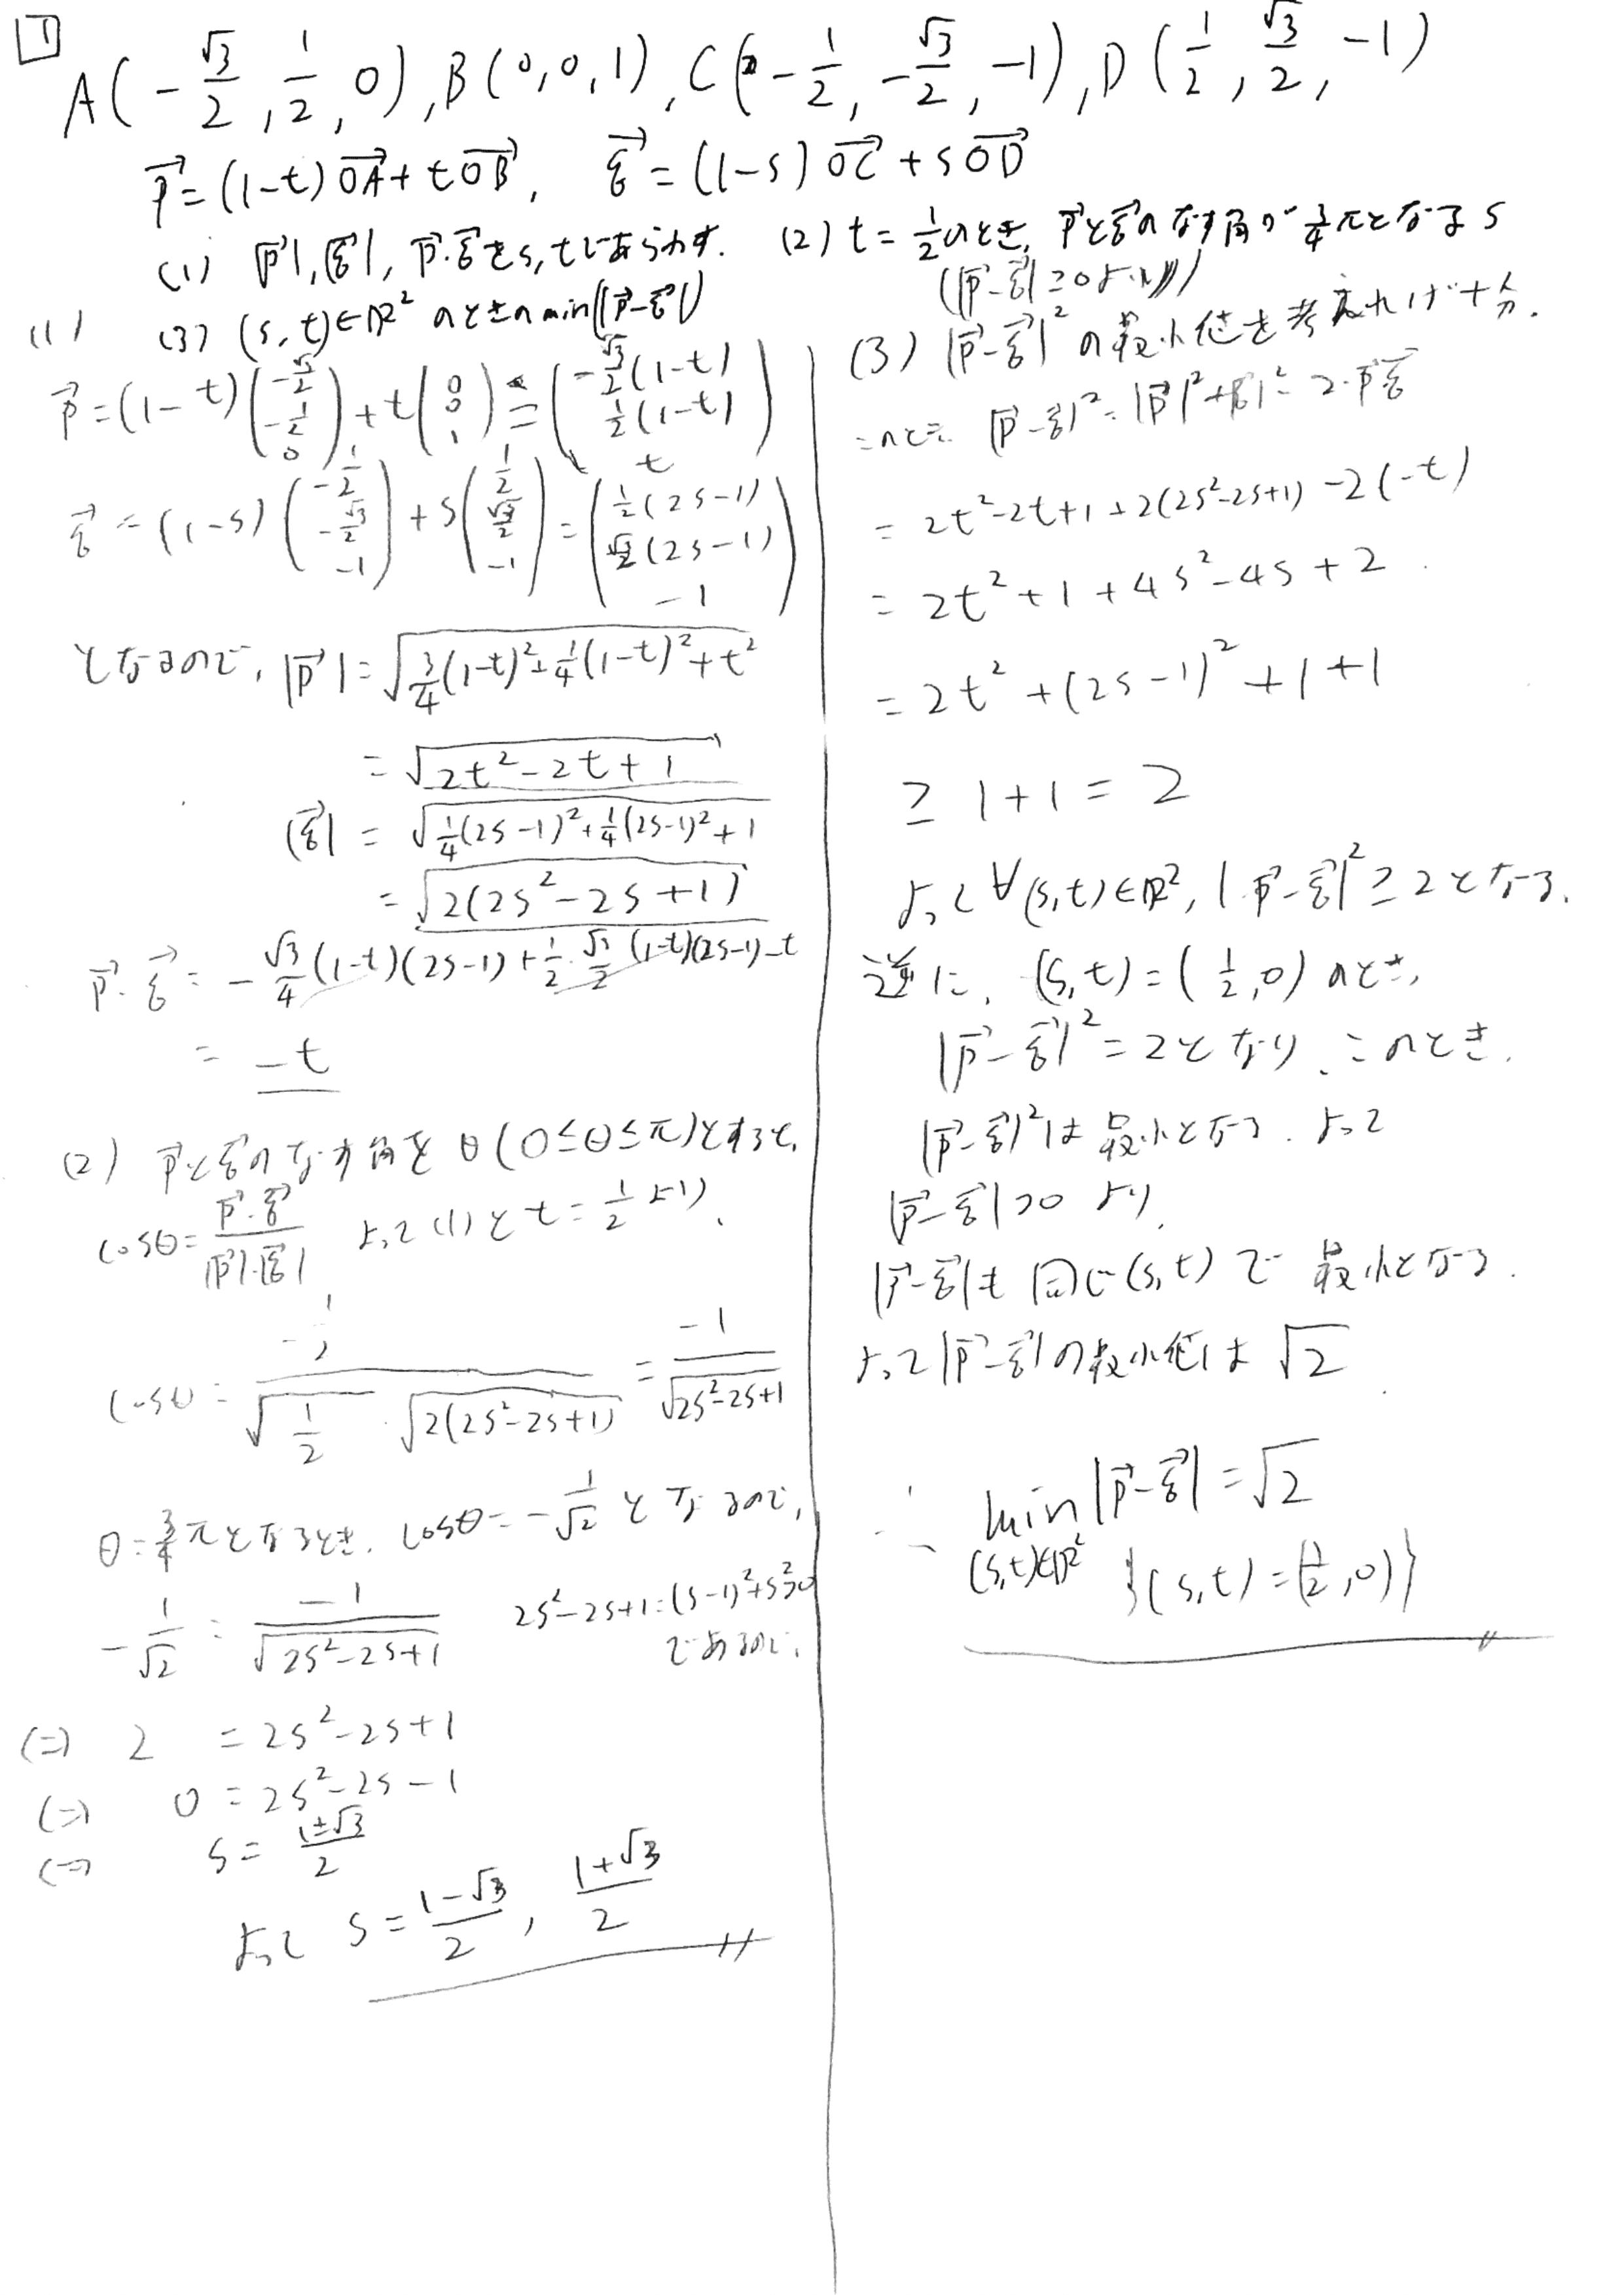 1
A(-√3/2, 1/2, 0), B(0,0,1), C(-1/2, -√3/2, -1), D(1/2, √3/2, -1)
p⃗=(1-t)OA⃗+tOB⃗, q⃗=(1-s)OC⃗+sOD⃗
(1) |p⃗|, |q⃗|, p⃗·q⃗をs,tであらわす. (2) t=1/2のとき, p⃗とq⃗のなす角が3/4πとなるs
(3) (s,t)∈ℝ²のときのmin(|p⃗-q⃗|)
(1)
p⃗=(1-t)(-√3/2, -1/2, 0)+t(0, 0, 1)=(-√3/2(1-t), 1/2(1-t), t)
q⃗=(1-s)(-1/2, -√3/2, -1)+s(1/2, √3/2, -1)=(1/2(2s-1), √3/2(2s-1), -1)
となるので, |p⃗|=√(3/4(1-t)²+1/4(1-t)²+t²)
=√(2t²-2t+1)
|q⃗|=√(1/4(2s-1)²+1/4(2s-1)²+1)
=√(2(2s²-2s+1))
p⃗·q⃗=-√3/4(1-t)(2s-1)+1/2·√3/2(1-t)(2s-1)-t
=-t
(2) p⃗とq⃗のなす角をθ(0≤θ≤π)とすると,
cosθ=p⃗·q⃗/|p⃗|·|q⃗| よって(1)とt=1/2より,
cosθ=-1/2/(√(1/2)·√(2(2s²-2s+1)))=-1/√(2s²-2s+1)
θ=3/4πとなるとき, cosθ=-1/√2となるので,
-1/√2=-1/√(2s²-2s+1) 2s²-2s+1=(s-1)²+s²>0
であるので,
(=) 2=2s²-2s+1
(=) 0=2s²-2s-1
(=) s=1±√3/2
よって s=1-√3/2, 1+√3/2
(|p⃗-q⃗|≥0より)
(3) |p⃗-q⃗|²の最小値を考えれば十分.
このとき |p⃗-q⃗|²=|p⃗|²+|q⃗|²-2·p⃗q⃗
=2t²-2t+1+2(2s²-2s+1)-2(-t)
=2t²+1+4s²-4s+2
=2t²+(2s-1)²+1+1
≥1+1=2
よって∀(s,t)∈ℝ², |p⃗-q⃗|²≥2となる.
逆に, (s,t)=(1/2,0)のとき,
|p⃗-q⃗|²=2となり, このとき,
|p⃗-q⃗|²は最小となる. よって
|p⃗-q⃗|>0より,
|p⃗-q⃗|も同じ(s,t)で最小となる.
よって|p⃗-q⃗|の最小値は√2
∴ min|p⃗-q⃗|=√2
(s,t)∈ℝ² {(s,t)=(1/2,0)}